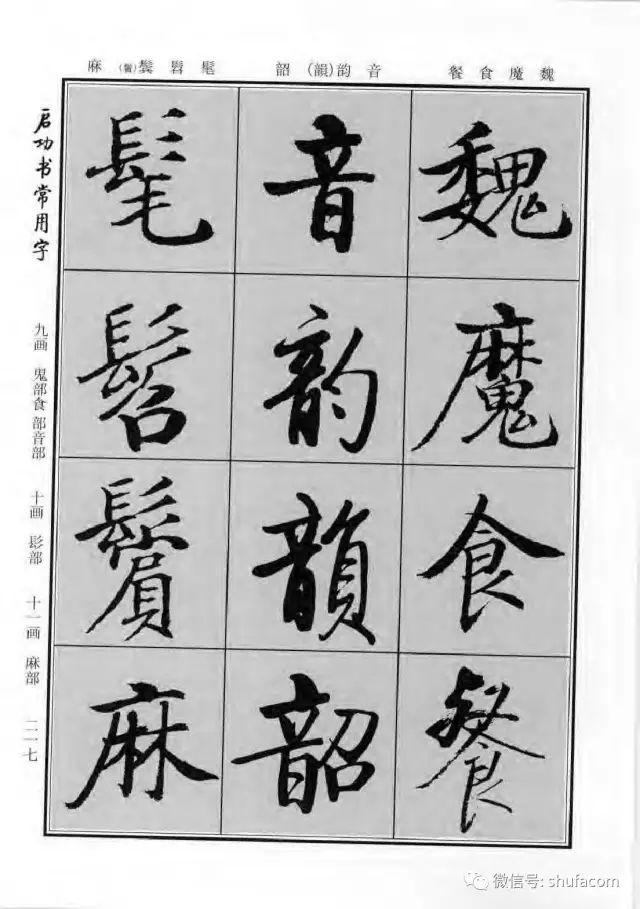 魏魔食餐
音韵(韻)韶
髦髫鬓(鬢)麻
魏
魔
食
餐
音
韵
韻
韶
髦
髫
鬢
麻
启功书常用字
九画 鬼部食部音部 十画 髟部 十一画 麻部 二一七
微信号: shufacom